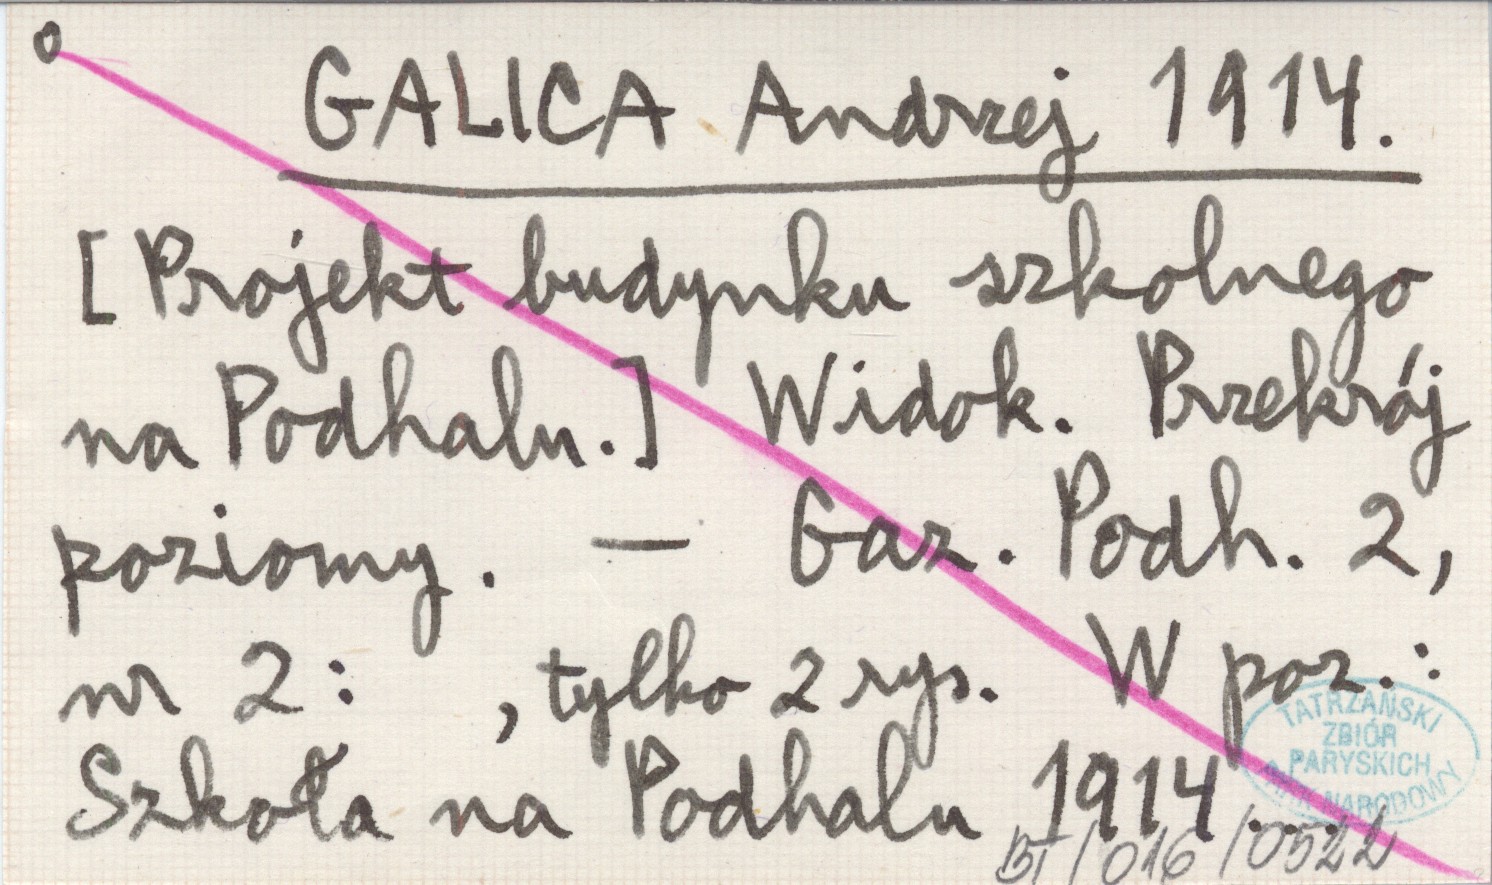 o
GALICA Andrzej 1914.
[Projekt budynku szkolnego
na Podhalu.] Widok. Przekrój
poziomy. — Gaz. Podh. 2,
nr 2: , tylko 2 rys. W poz.:
Szkoła na Podhalu 1914....
TATRZAŃSKI
ZBIÓR
PARYSKICH
PARK NARODOWY
BT/016/0522